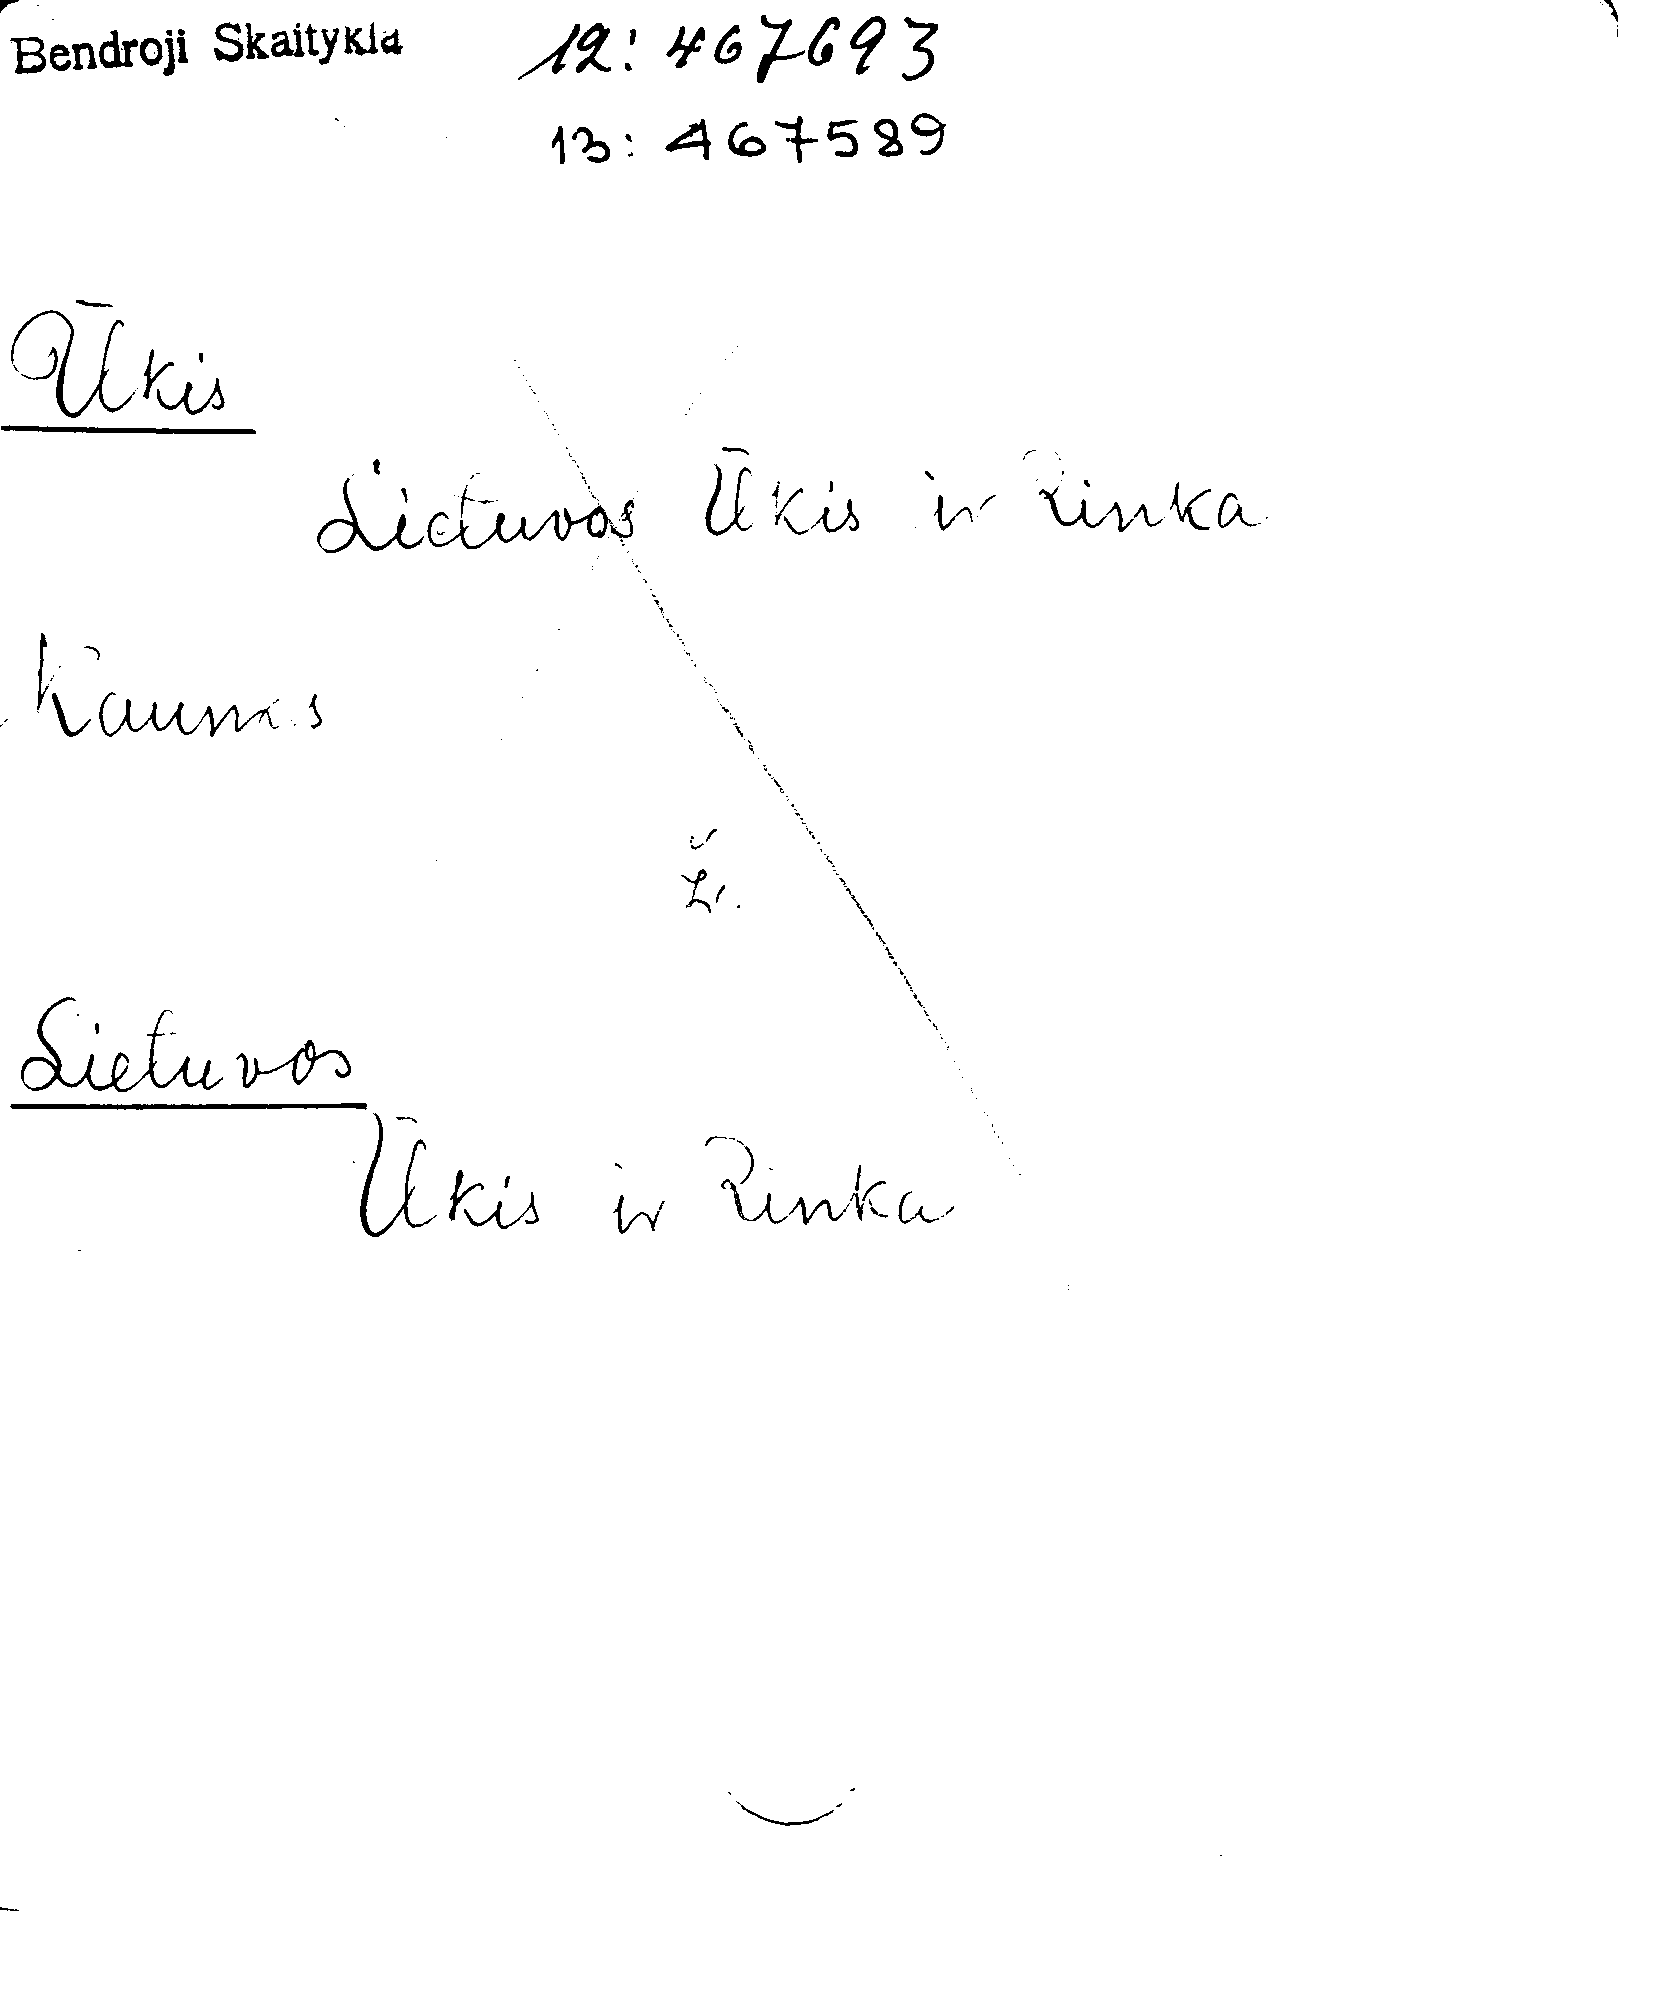 Bendroji Skaitykla 12: 467693
13: 467589
Ūkis
Lietuvos Ūkis ir Rinka
Kaunas
Ž.
Lietuvos
Ūkis ir Rinka